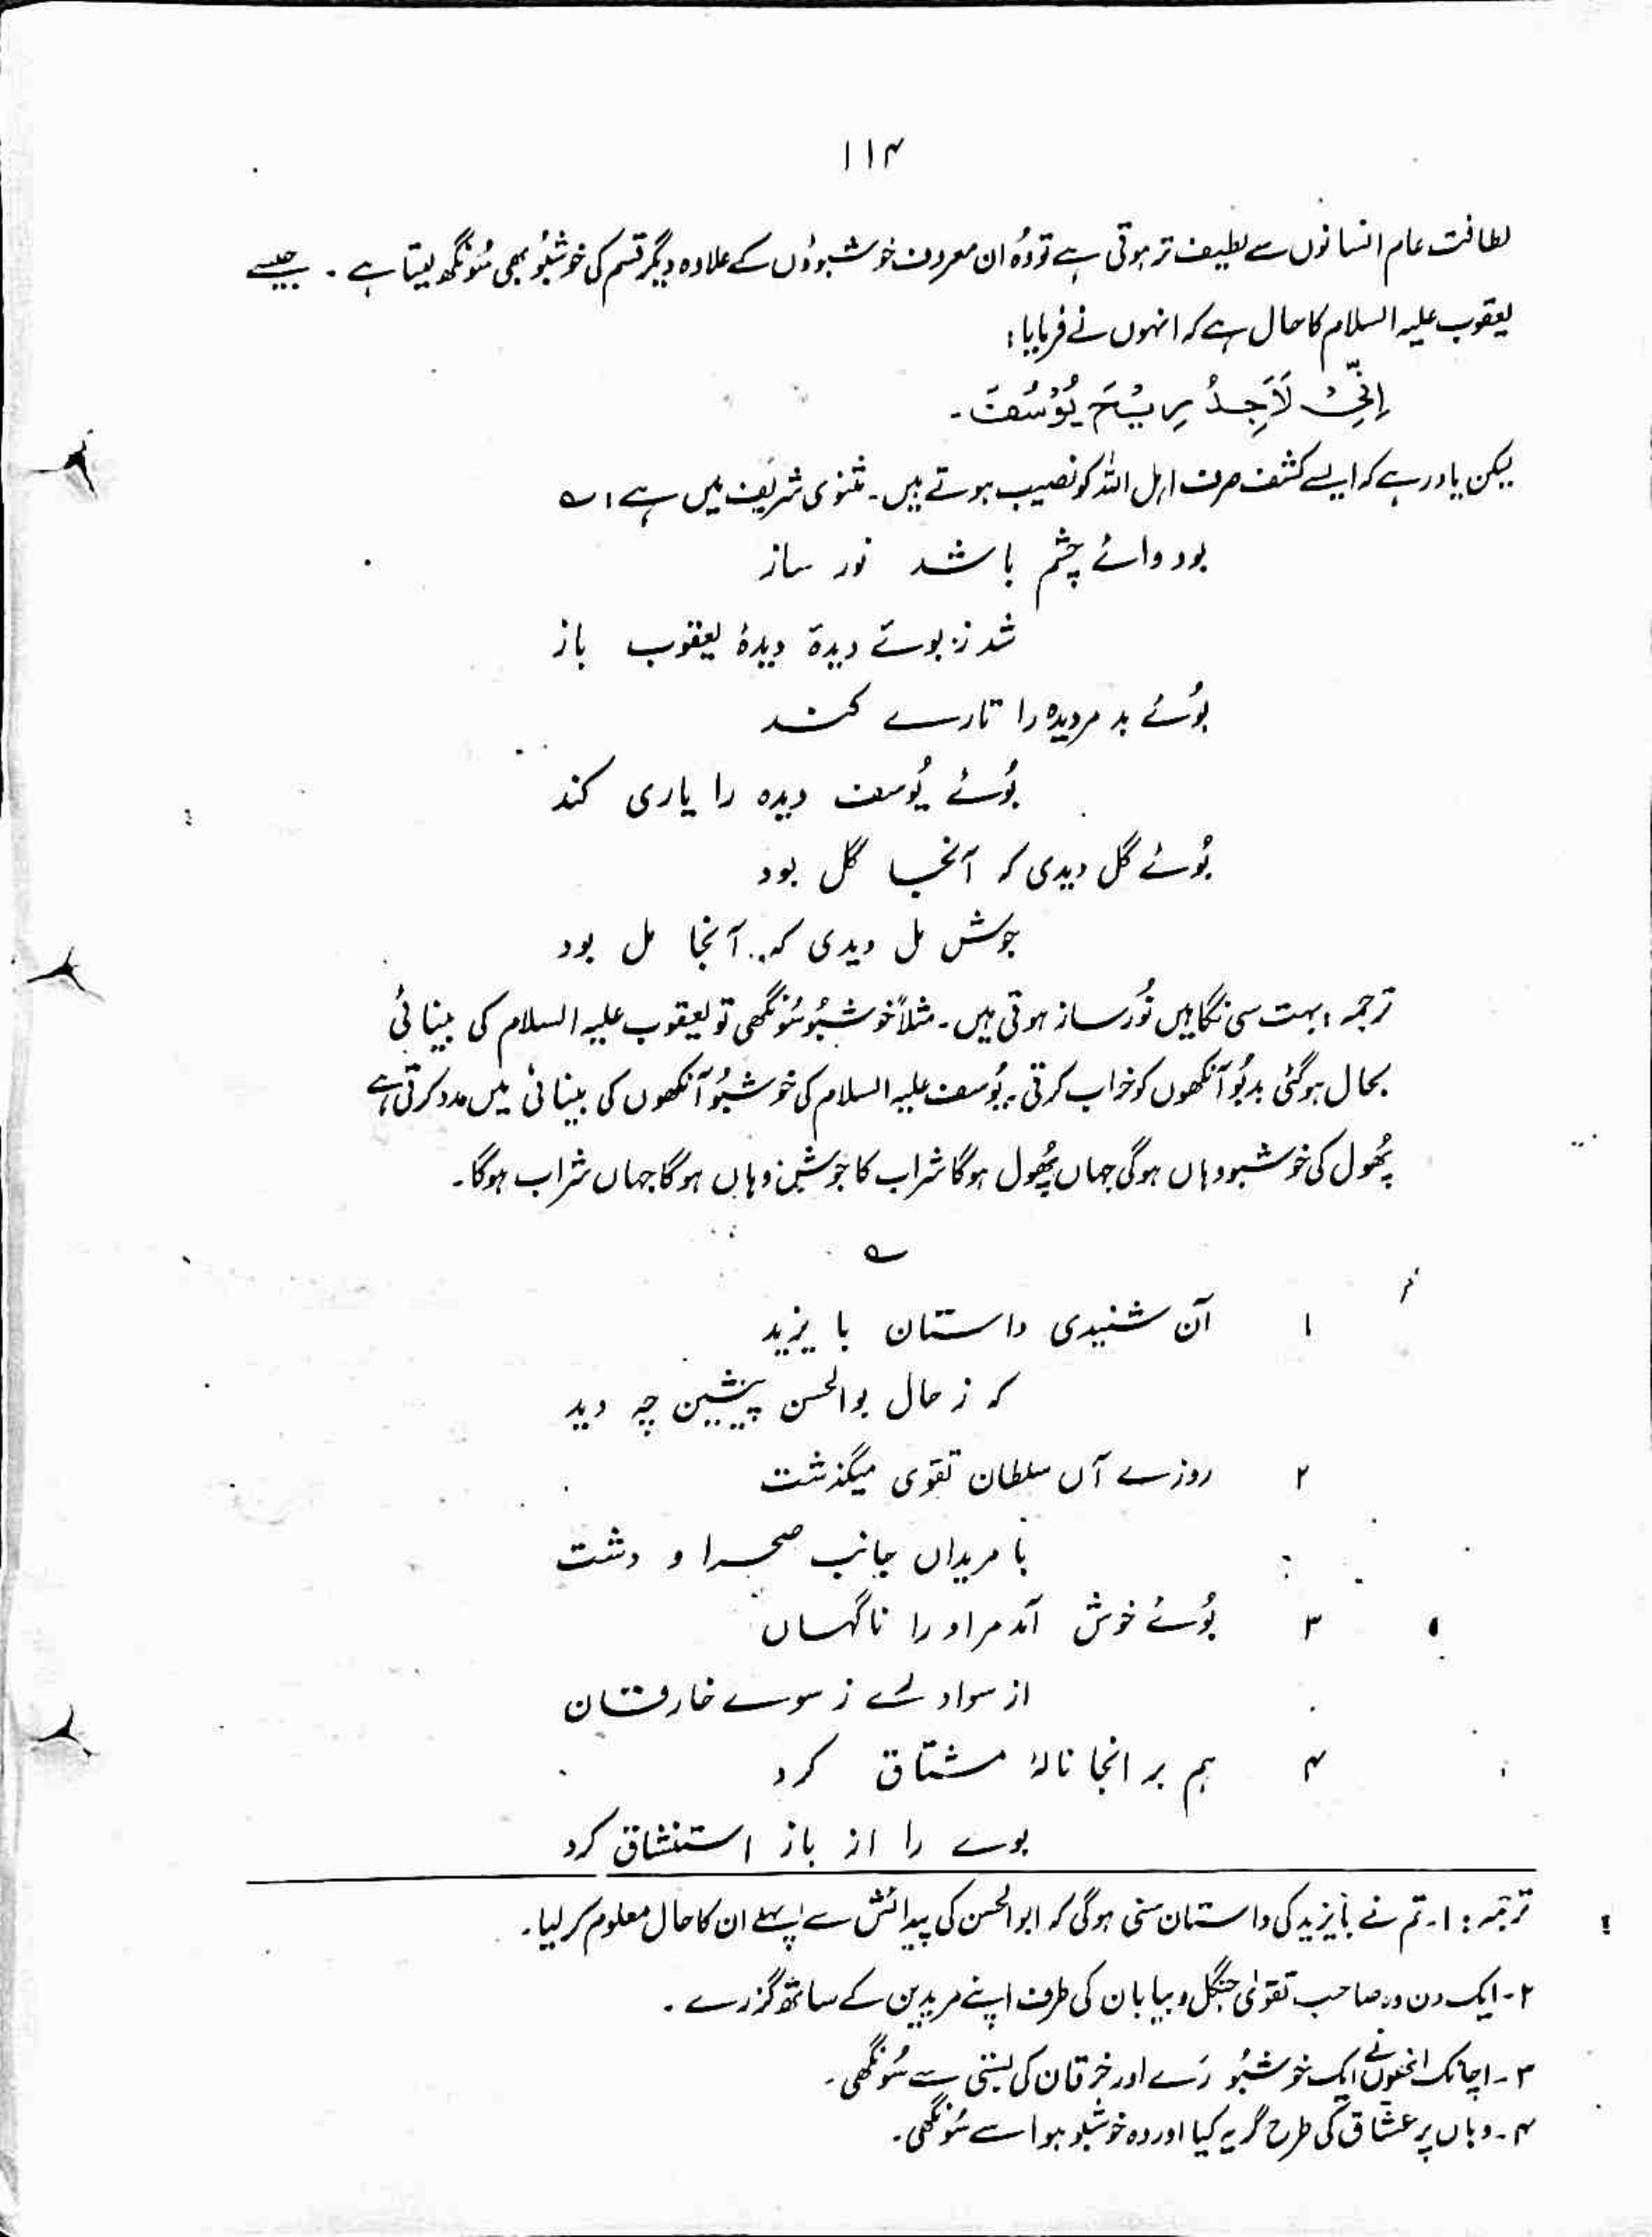 ۱۱۴
لطافت عام انسانوں سے لطیف تر ہوتی ہے تو وہ ان معروف خوشبوؤں کے علاوہ دیگر قسم کی خوشبُو بھی سُونگھ لیتا ہے ۔ جیسے
یعقوب علیہ السلام کا حال ہے کہ انہوں نے فرمایا :
اِنِّیْ لَاَجِدُ رِیْحَ یُوْسُفَ ۔
لیکن یاد رہے کہ ایسے کشف صرف اہل اللہ کو نصیب ہوتے ہیں ۔ مثنوی شریف میں ہے : ؎
بود وائے چشم باشد نور ساز
شد ز بوئے دیدۃ دیدۂ یعقوب باز
بُوئے بد مر دیدہ را تارے کند
بُوئے یُوسف دیدہ را یاری کند
بُوئے گل دیدی کہ آنجا گل بود
جوش مل دیدی کہ آنجا مل بود
ترجمہ : بہت سی نگاہیں نُور ساز ہوتی ہیں ۔ مثلاً خوشبُو سُونگھی تو یعقوب علیہ السلام کی بینائی
بحال ہوگئی بدبُو آنکھوں کو خراب کرتی ہے یُوسف علیہ السلام کی خوشبُو آنکھوں کی بینائی میں مدد کرتی ہے
پُھول کی خوشبو وہاں ہوگی جہاں پُھول ہوگا شراب کا جوش وہاں ہوگا جہاں شراب ہوگا ۔
؎
۱ آن شنیدی داستان با یزید
کہ ز حال بوالحسن پیشین چہ دید
۲ روزے آں سلطان تقوی میگذشت
با مریداں جانب صحرا و دشت
۳ بُوئے خوش آمد مر او را ناگہاں
از سواد لے ز سوے خارقان
۴ ہم بر انجا نالۂ مشتاق کرد
بوے را از باز استنشاق کرد
ترجمہ : ۱ ۔ تم نے بایزید کی داستان سنی ہوگی کہ ابوالحسن کی پیدائش سے پہلے ان کا حال معلوم کر لیا ۔
۲ ۔ ایک دن وہ صاحب تقوٰی جنگل و بیابان کی طرف اپنے مریدین کے ساتھ گزرے ۔
۳ ۔ اچانک انھوں نے ایک خوشبُو رَے اور خرقان کی بستی سے سُونگھی ۔
۴ ۔ وہاں پر عشاق کی طرح گریہ کیا اور وہ خوشبُو ہوا سے سُونگھی ۔